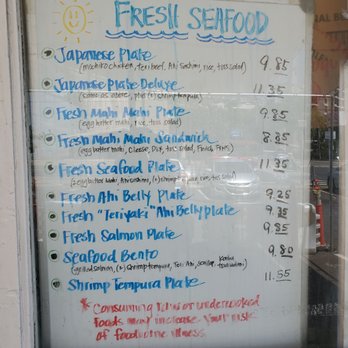 FRESH SEAFOOD
Japanese Plate 9.85
(mochiko chicken, teri beef, Ahi Sashimi, rice, toss salad)
Japanese Plate Deluxe 11.35
(same as above, plus shrimp tempura)
Fresh Mahi Mahi Plate 9.85
(egg batter mahi, rice, toss salad)
Fresh Mahi Mahi Sandwich 8.85
(egg batter mahi, Cheese, toss salad, French Fries)
Fresh Seafood Plate 11.35
(egg batter Mahi, Ahi Sashimi, shrimp toss salad)
Fresh Ahi Belly Plate 9.25
Fresh "Teriyaki" Ahi Belly plate
Fresh Salmon Plate 9.85
Seafood Bento 9.80
(grilled salmon, Shrimp tempura, Teri Ahi,
Shrimp Tempura Plate
* Consuming raw or undercooked
foods may increase your risk
of foodborne illness.